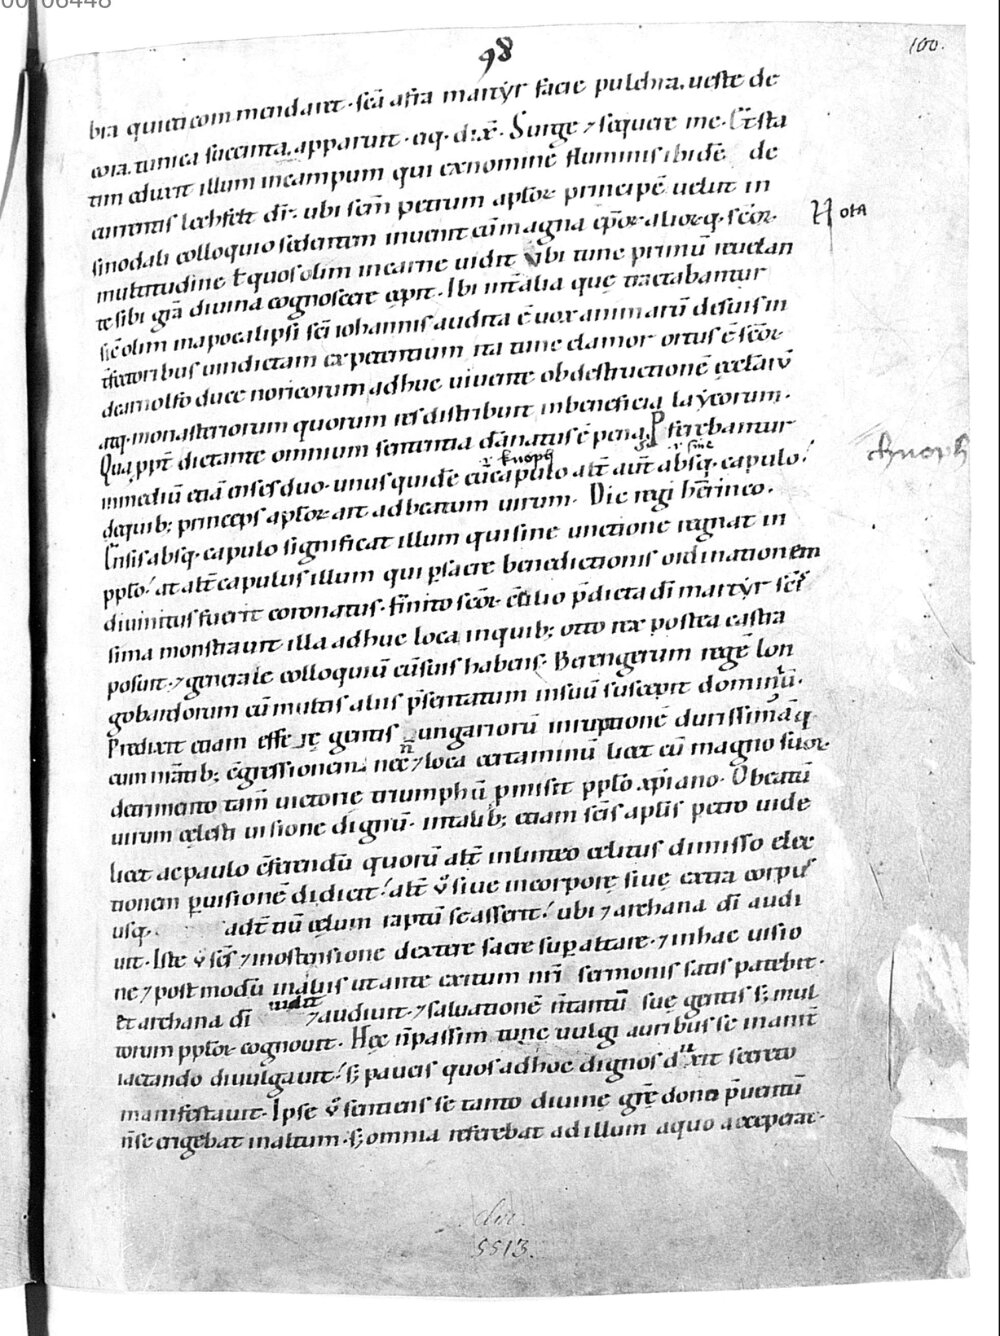 00106448
98
100.
bra quieti commendaret · scā afra martyr facie pulchra, ueste de
cora, tunica succinta, apparuit · eiq· dix̄. Surge ⁊ sequere me. Et sta
tim eduxit illum in campum qui ex nomine fluminis ibidē de
currentis lechfelt dr̄. ubi scm̄ petrum apl̄oꝝ principē uelut in
sinodali colloquio sedentem inuenit cū magna ep̄oꝝ alioꝝq· sc̄oꝝ
Nota
multitudine. Et quos olim in carne uidit ubi tunc primū reuelan
te sibi gr̄a diuina cognoscere cepit. Ibi int̄ alia quę tractabantur
sic̄ olim in apocalipsi sc̄i iohannis audita ē uox animarū de suis in
t̄fectoribus uindictam expetentium ita tunc clamor ortus ē sc̄oꝝ
de arnolfo duce noricorum adhuc uiuente ob destructionē ęcclarū
atq· monasteriorum quorum res distribuit in beneficia laycorum.
Qua ppt̄ dictante omnium sententia dānatus ē pena. P ferebantur
in mediū etiā enses duo. unus quidē cū capulo alt̄ aut̄ absq· capulo.
.i. knoph
.i. sine
chnoph
de quib; princeps apl̄oꝝ ait ad beatum uirum. Dic regi heinrico.
Ensis absq· capulo significat illum qui sine unctione regnat in
ppl̄o. at alt̄ capulus illum qui p sacre benedictionis ordinationem
diuinitus fuerit coronatus. finito sc̄oꝝ c̄silio p̄dicta dī martyr sc̄is
sima monstrauit illa adhuc loca in quib; otto rex postea castra
posuit. ⁊ generale colloquiū cū suis habens. Berengerum regē lon
gobardorum cū multis aliis p̄sentatum in suū suscepit dominiū.
Predixit etiam esse rę gentis ungariorū irruptionē durissimā q·
cum mātib; ēgressionem. nec̄ ⁊ loca certaminū licet cū magno suoꝝ
detrimento tam̄ uictorie triumphū pmisit ppl̄o xp̄iano. O beatū
uirum cęlesti uisione dignū. in talib; etiam sc̄is apl̄is petro uide
licet ac paulo c̄ferendū quorū alt̄ in linteo celitus dimisso elec
tionem p uisionē didicit. alt̄ v̊ siue in corpore siue extra corpus
usq· ad t̄tiū cęlum raptū se asserit. ubi ⁊ archana dī audi
uit. Iste v̊ sc̄s ⁊ in ostensione dextere sacre sup altare. ⁊ in hac uisio
ne ⁊ post modū in aliis ut ante exitum nr̄i sermonis satis patebit.
et archana dī uidit ⁊ audiuit. ⁊ saluationē n̄ tantū suę gentis s; mul
torum pploꝝ cognouit. Hęc n̄ passim tunc uulgi auribus se inanit̄
iactando diuulgauit. s; paucis quos ad hoc dignos duxit secreto
manifestauit. Ipse v̊ sentiens se tanto diuinę gr̄ę dono p̄uentū
n̄ se erigebat in altum. s; omnia referebat ad illum a quo acceperat.
5513.